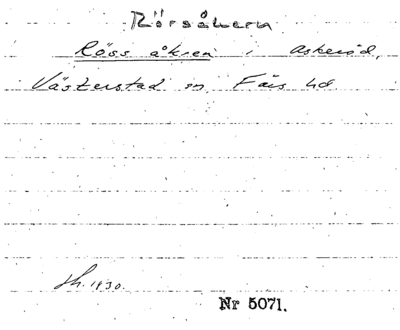 Rörsåkern
Röss åkren i Askeröd,
Västerstad sn, Färs hd
1930.
Nr 5071.